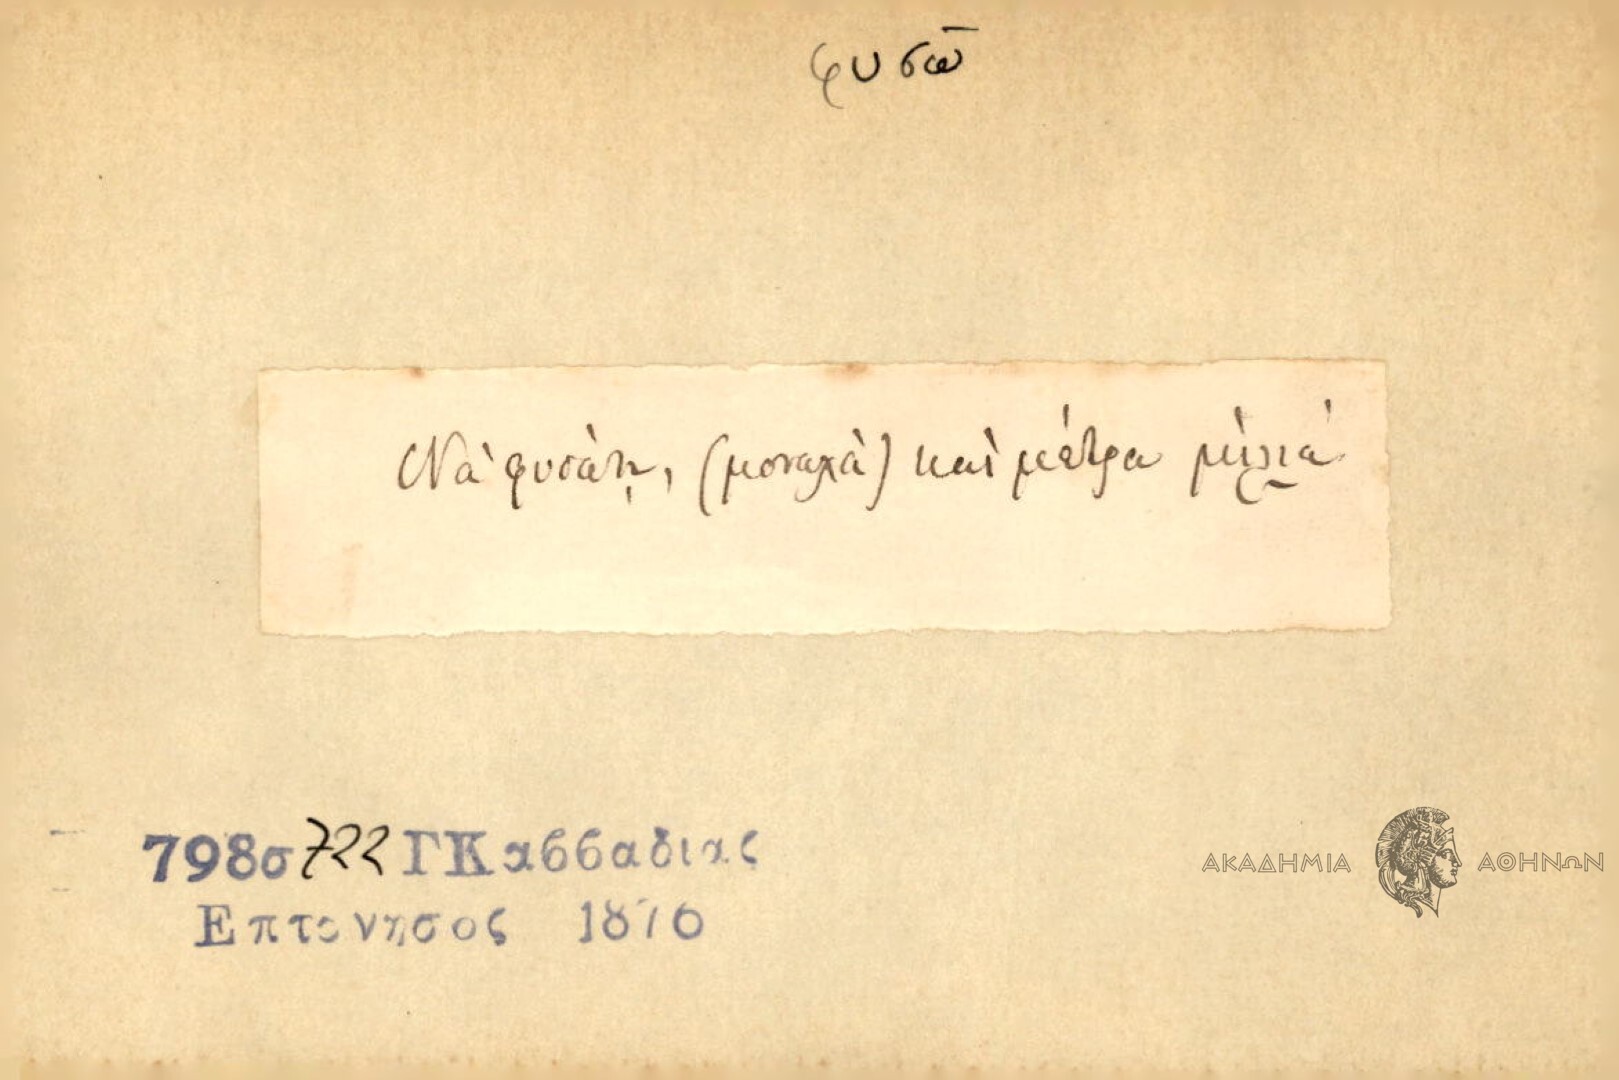 φυσῶ
Νὰ φυσάῃ, (μοναχὰ) καὶ μέτρα μίλια
798σ 722 ΓΚαββαδιας
Επτανησος 1876
ΑΚΑΔΗΜΙΑ ΑΘΗΝΩΝ